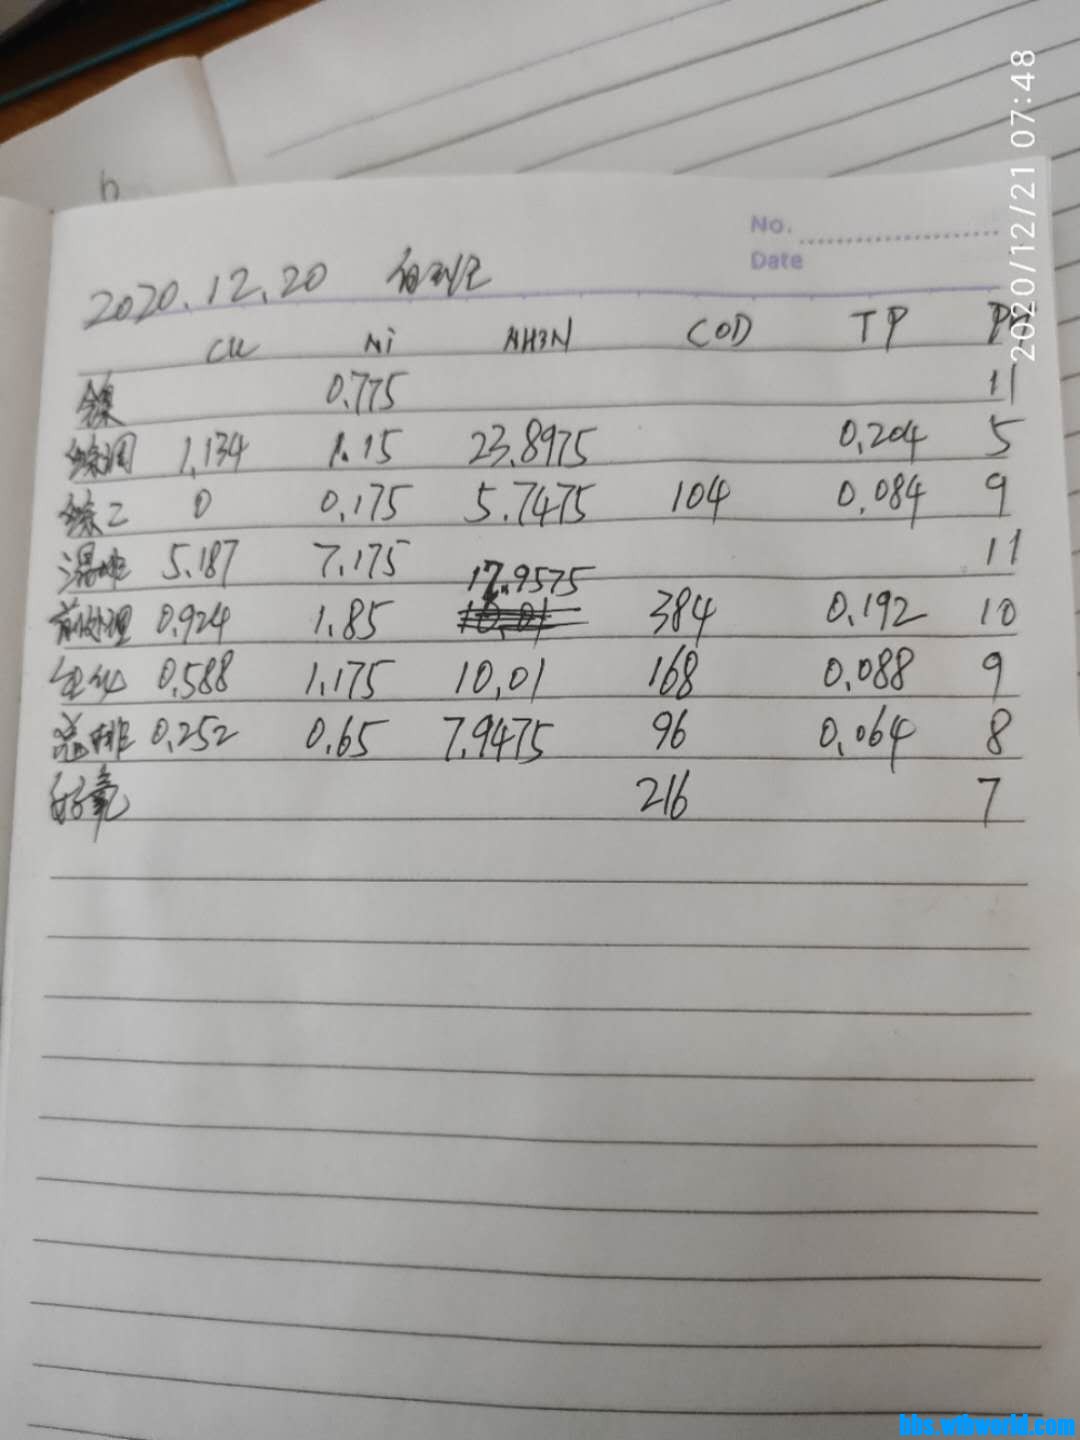 2020/12/21 07:48
No.
Date
2020.12.20
Cu Ni NH3N COD TP PH
含镍 0.775 11
1.134 1.15 23.8975 0.204 5
0 0.175 5.7475 104 0.084 9
混排 5.187 7.175 11
17.9575
前处理 0.924 1.85 10.01 384 0.192 10
生化 0.588 1.175 10.01 168 0.088 9
总排 0.252 0.65 7.9475 96 0.064 8
好氧 216 7
bbs.wtbworld.com